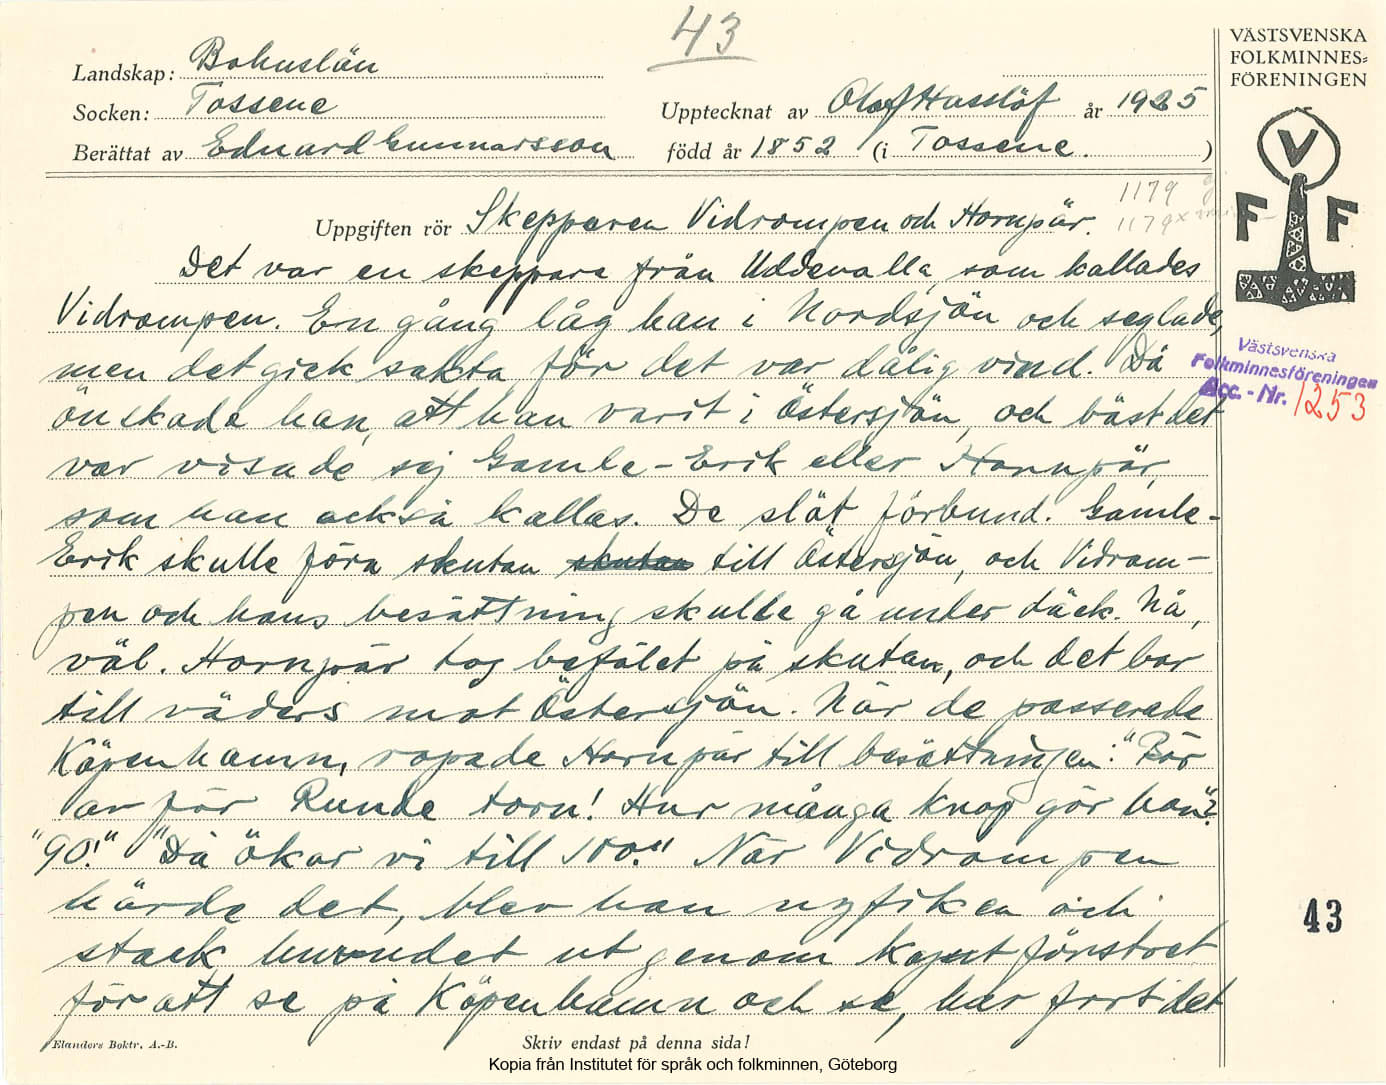 43
VÄSTSVENSKA
FOLKMINNES=
FÖRENINGEN
Landskap: Bohuslän
Socken: Tossene
Upptecknat av Olof Hasslöf år 1925
Berättat av Edvard Gunnarsson född år 1852 (i Tossene.)
V
F F
1179
1179
Uppgiften rör Skepparen Vidrompen och Hornpär.
Det var en skeppare från Uddevalla, som kallades
Vidrompen. En gång låg han i Nordsjön och seglade,
men det gick sakta, för det var dålig vind. Då
önskade han, att han varit i Östersjön, och bäst det
var visade sej Gamle-Erik eller Hornpär,
som han också kallas. De slöt förbund. Gamle-
Erik skulle föra skutan skutan till Östersjön, och Vidrom-
pen och hans besättning skulle gå under däck. Nå,
väl. Hornpär tog befälet på skutan, och det bar
till väders mot Östersjön. När de passerade
Köpenhamn, ropade Hornpär till besättningen: "Bär
av för Runde torn! Hur många knop gör han"?
"90!" "Då ökar vi till 100!" När Vidrompen
hörde det, blev han nyfiken och
stack huvudet ut genom kajutfönstret
för att se på Köpenhamn och se, hur fort det
Västsvenska
Folkminnesföreningen
Acc. - Nr. 1253
43
Elanders Boktr. A.-B.
Skriv endast på denna sida!
Kopia från Institutet för språk och folkminnen, Göteborg